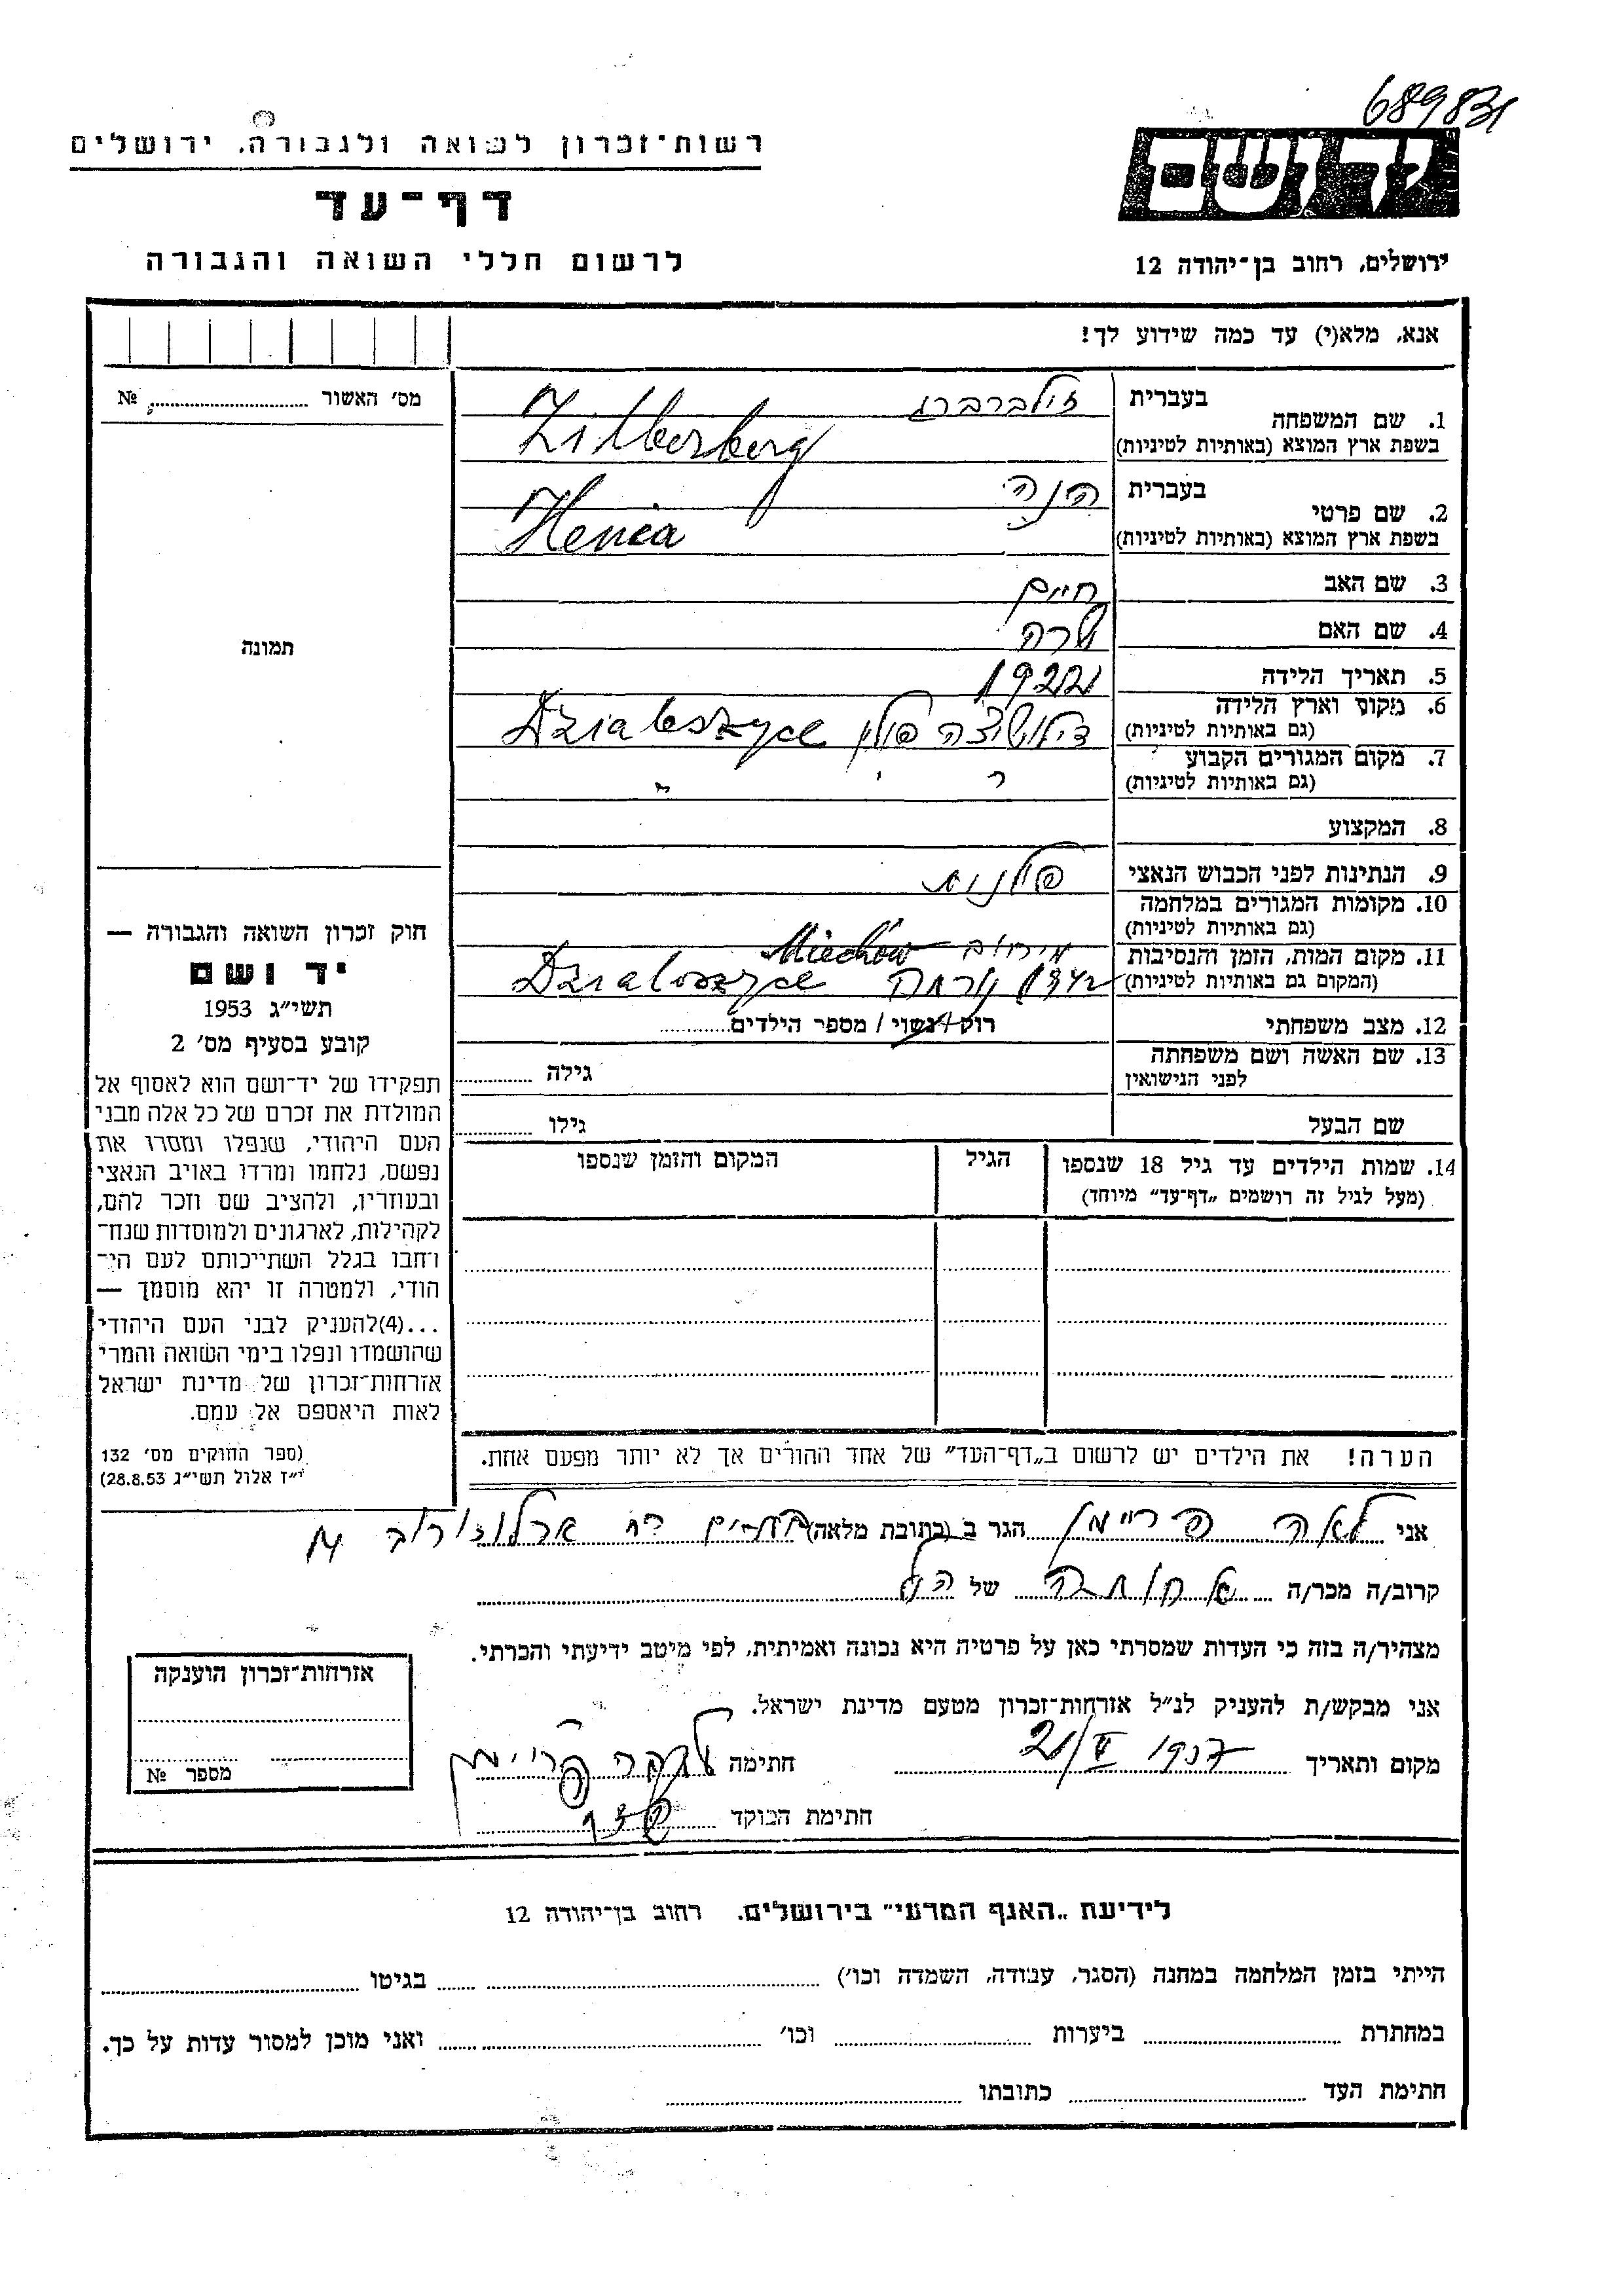 689831
רשות־זכרון לשואה ולגבורה, ירושלים
יד ושם
דף־עד
לרשום חללי השואה והגבורה
ירושלים, רחוב בן־יהודה 12
אנא, מלא(י) עד כמה שידוע לך!
מס׳ האשור № 
1. שם המשפחה בעברית זילברברג
בשפת ארץ המוצא (באותיות לטיניות) Zilberberg
2. שם פרטי בעברית הניה
בשפת ארץ המוצא (באותיות לטיניות) Henia
3. שם האב חיים
4. שם האם שרה
5. תאריך הלידה 1922
6. מקום וארץ הלידה
(גם באותיות לטיניות) פולין Dzialoszyce
7. מקום המגורים הקבוע
(גם באותיות לטיניות) " " "
8. המקצוע
9. הנתינות לפני הכבוש הנאצי פולנית
10. מקומות המגורים במלחמה
(גם באותיות לטיניות)
11. מקום המות, הזמן והנסיבות מיחוב Miechów
(המקום גם באותיות לטיניות) Dzialoszyce
12. מצב משפחתי רווק / נשוי / מספר הילדים
13. שם האשה ושם משפחתה
לפני הנישואין גילה
שם הבעל גילו
14. שמות הילדים עד גיל 18 שנספו הגיל המקום והזמן שנספו
(מעל לגיל זה רושמים „דף־עד״ מיוחד)
הערה! את הילדים יש לרשום ב„דף־העד״ של אחד ההורים אך לא יותר מפעם אחת.
תמונה
חוק זכרון השואה והגבורה —
יד ושם
תשי״ג 1953
קובע בסעיף מס׳ 2
תפקידו של יד־ושם הוא לאסוף אל
המולדת את זכרם של כל אלה מבני
העם היהודי, שנפלו ומסרו את
נפשם, נלחמו ומרדו באויב הנאצי
ובעוזריו, ולהציב שם וזכר להם,
לקהילות, לארגונים ולמוסדות שנח־
רחבו בגלל השתייכותם לעם הי־
הודי, ולמטרה זו יהא מוסמך —
...(4)להעניק לבני העם היהודי
שהושמדו ונפלו בימי השואה והמרי
אזרחות־זכרון של מדינת ישראל
לאות היאספם אל עמם.
(ספר החוקים מס׳ 132
י״ז אלול תשי״ג 28.8.53)
אני לאה פריימן הגר ב (כתובת מלאה) רח ארלוזורוב
קרוב/ה מכר/ה של
מצהיר/ה בזה כי העדות שמסרתי כאן על פרטיה היא נכונה ואמיתית, לפי מיטב ידיעתי והכרתי.
אני מבקש/ת להעניק לנ״ל אזרחות־זכרון מטעם מדינת ישראל.
מקום ותאריך 1957 חתימה פריימן
חתימת הפוקד
אזרחות־זכרון הוענקה
מספר №
לידיעת „האגף המדעי״ בירושלים, רחוב בן־יהודה 12
הייתי בזמן המלחמה במחנה (הסגר, עבודה, השמדה וכו׳) בגיטו
במחתרת ביערות וכו׳ ואני מוכן למסור עדות על כך.
חתימת העד כתובתו